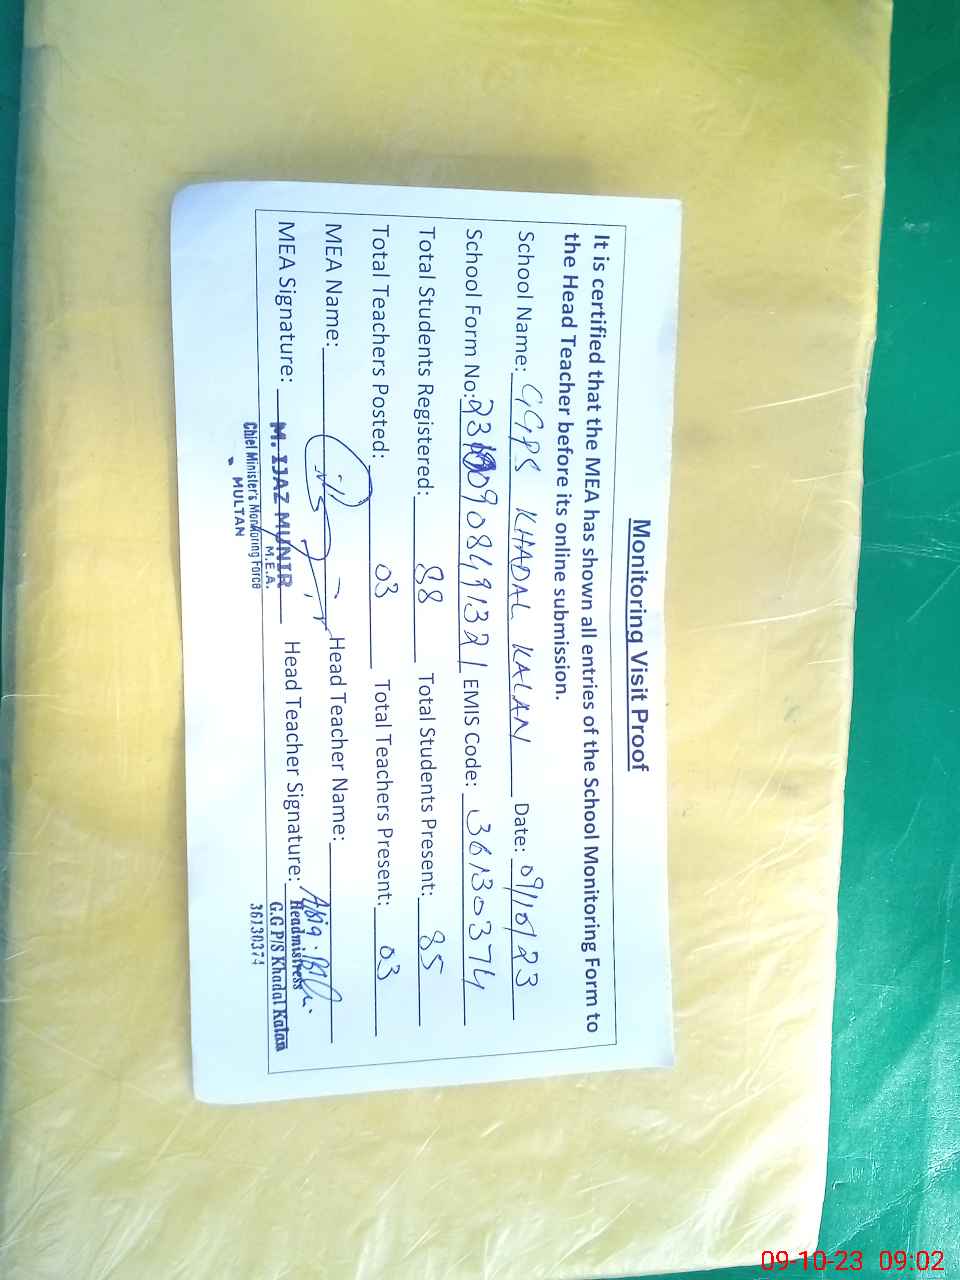 Monitoring Visit Proof
It is certified that the MEA has shown all entries of the School Monitoring Form to
the Head Teacher before its online submission.
School Name: GGPS KHADAL KALAN Date: 09/10/23
School Form No: 0908491321 EMIS Code: 36130374
Total Students Registered: 88 Total Students Present: 85
Total Teachers Posted: 03 Total Teachers Present: 03
MEA Name: Head Teacher Name:
MEA Signature: Head Teacher Signature:
M. IJAZ MUNIR
M.E.A.
Chief Minister's Monitoring Force
MULTAN
Headmistress
G.G P/S Khadal Kalan
36130374
09-10-23 09:02